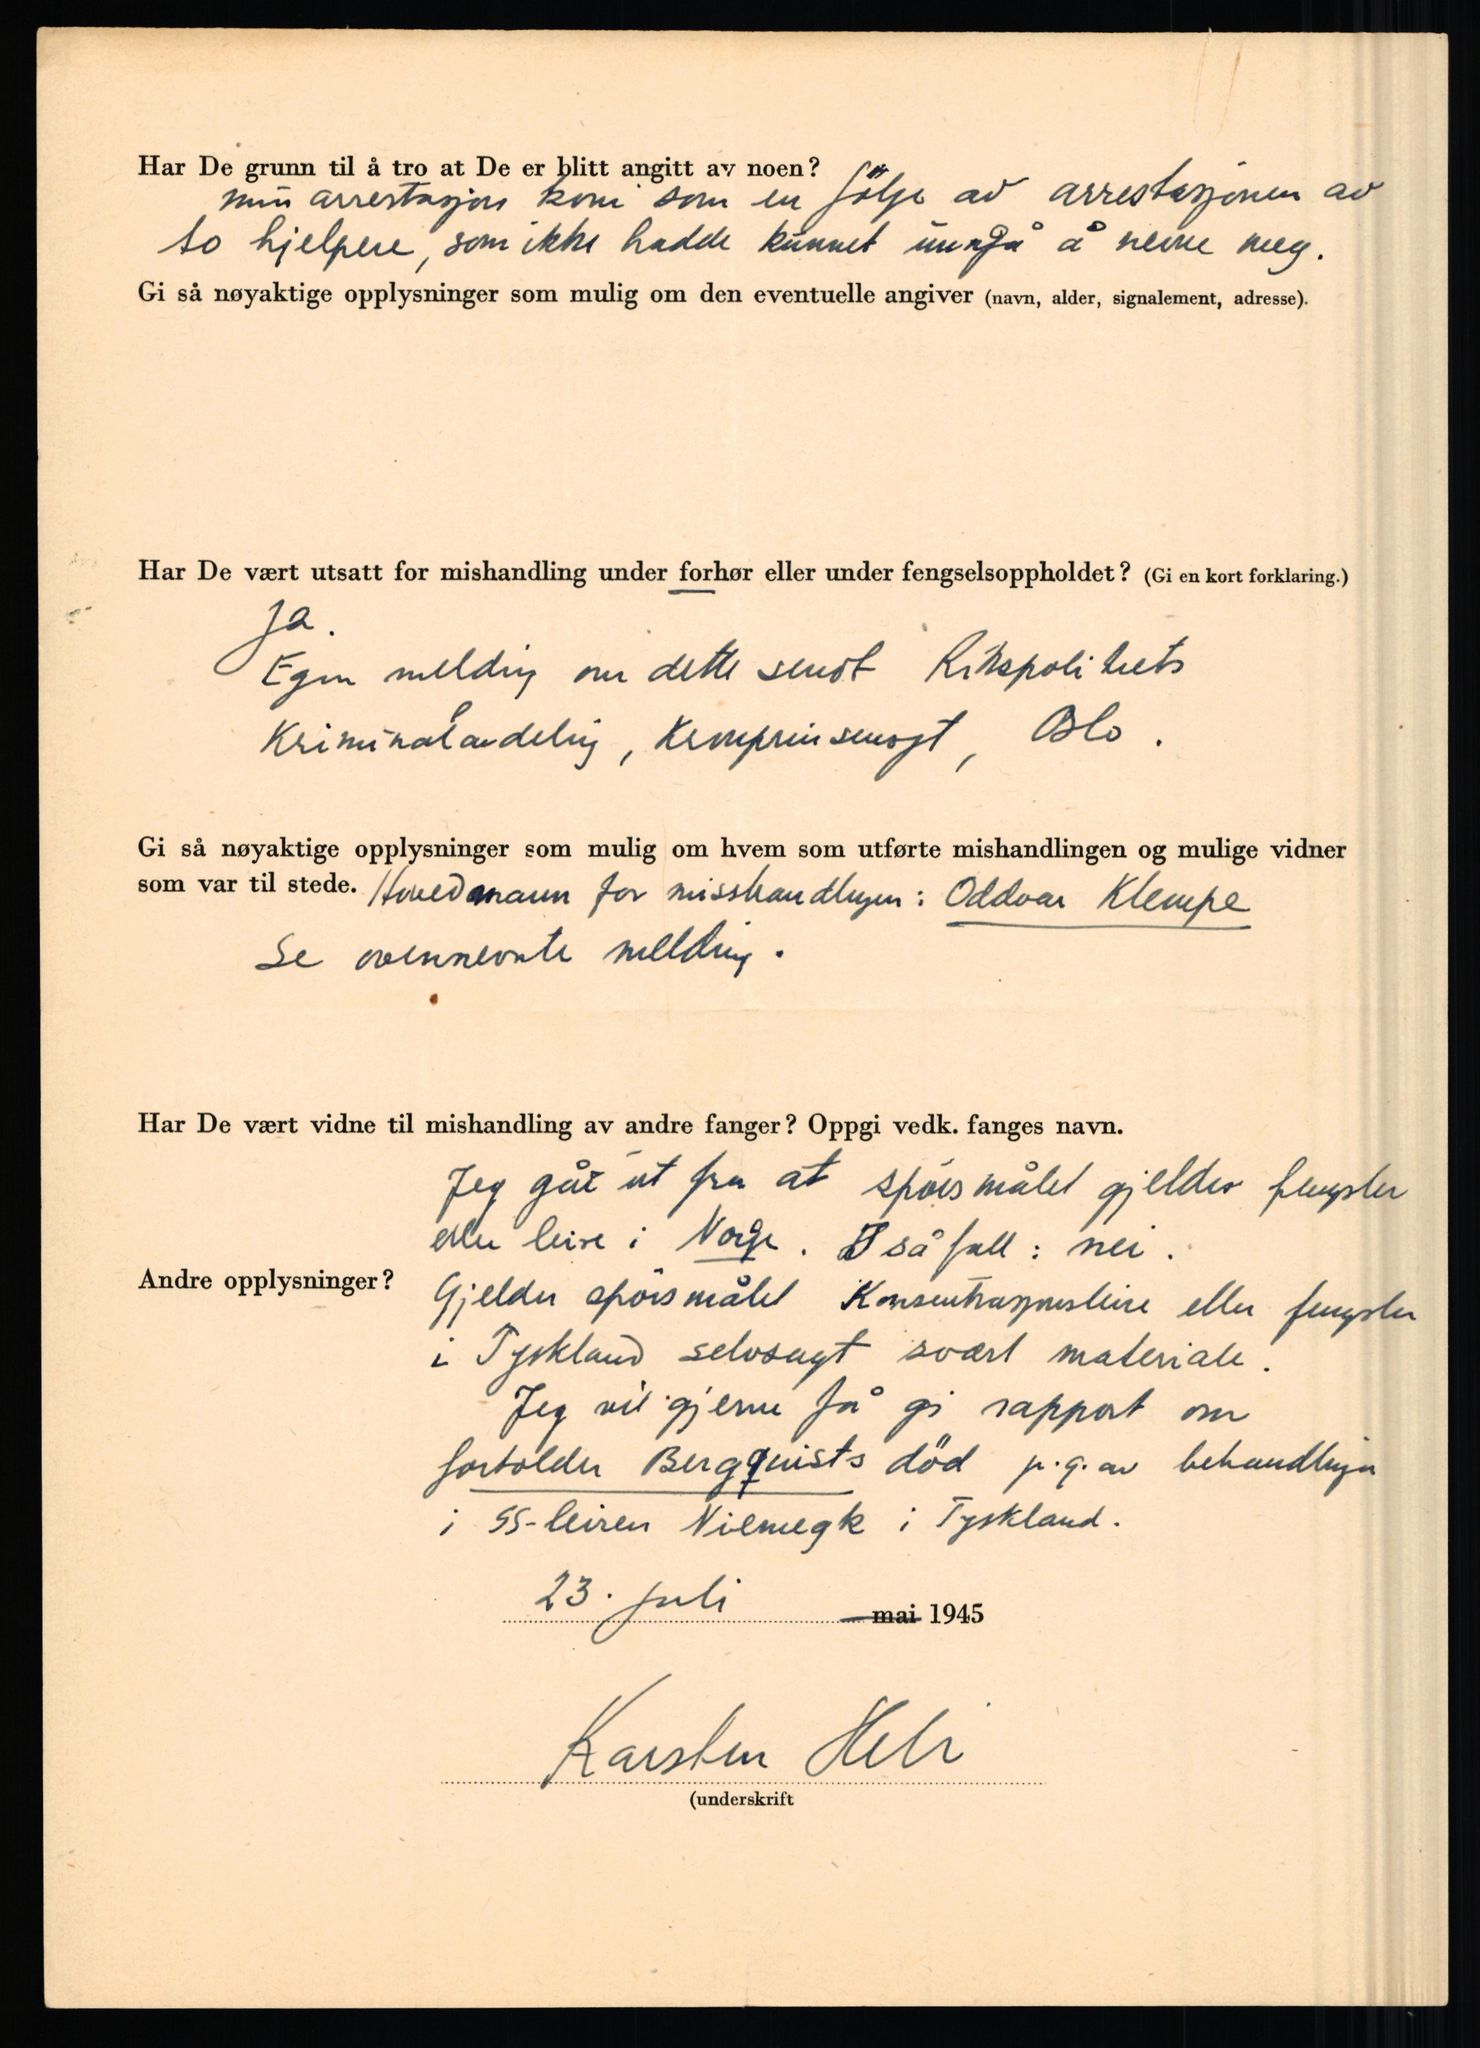 Har De grunn til å tro at De er blitt angitt av noen?
min arrestasjon kom som en følge av arrestasjonen av
to hjelpere, som ikke hadde kunnet unngå å nevne meg.
Gi så nøyaktige opplysninger som mulig om den eventuelle angiver (navn, alder, signalement, adresse).
Har De vært utsatt for mishandling under forhør eller under fengselsoppholdet? (Gi en kort forklaring.)
Ja.
Egen melding om dette sendt Rikspolitiets
Kriminalavdeling, Kronprinsensgt, Oslo.
Gi så nøyaktige opplysninger som mulig om hvem som utførte mishandlingen og mulige vidner
som var til stede. Hovedmann for misshandlingen: Oddvar Klempe
Se ovennevnte melding.
Har De vært vidne til mishandling av andre fanger? Oppgi vedk. fanges navn.
Jeg går ut fra at spörsmålet gjelder fengsler
eller leire i Norge. I så fall: nei.
Andre opplysninger?
Gjelder spörsmålet Konsentrasjonsleire eller fengsler
i Tyskland selvsagt svært materiale.
Jeg vil gjerne få gi rapport om
fortolder Bergquists död p.g.av behandlingen
i SS-leiren Niemegk i Tyskland.
23. juli mai 1945
Karsten Heli
(underskrift